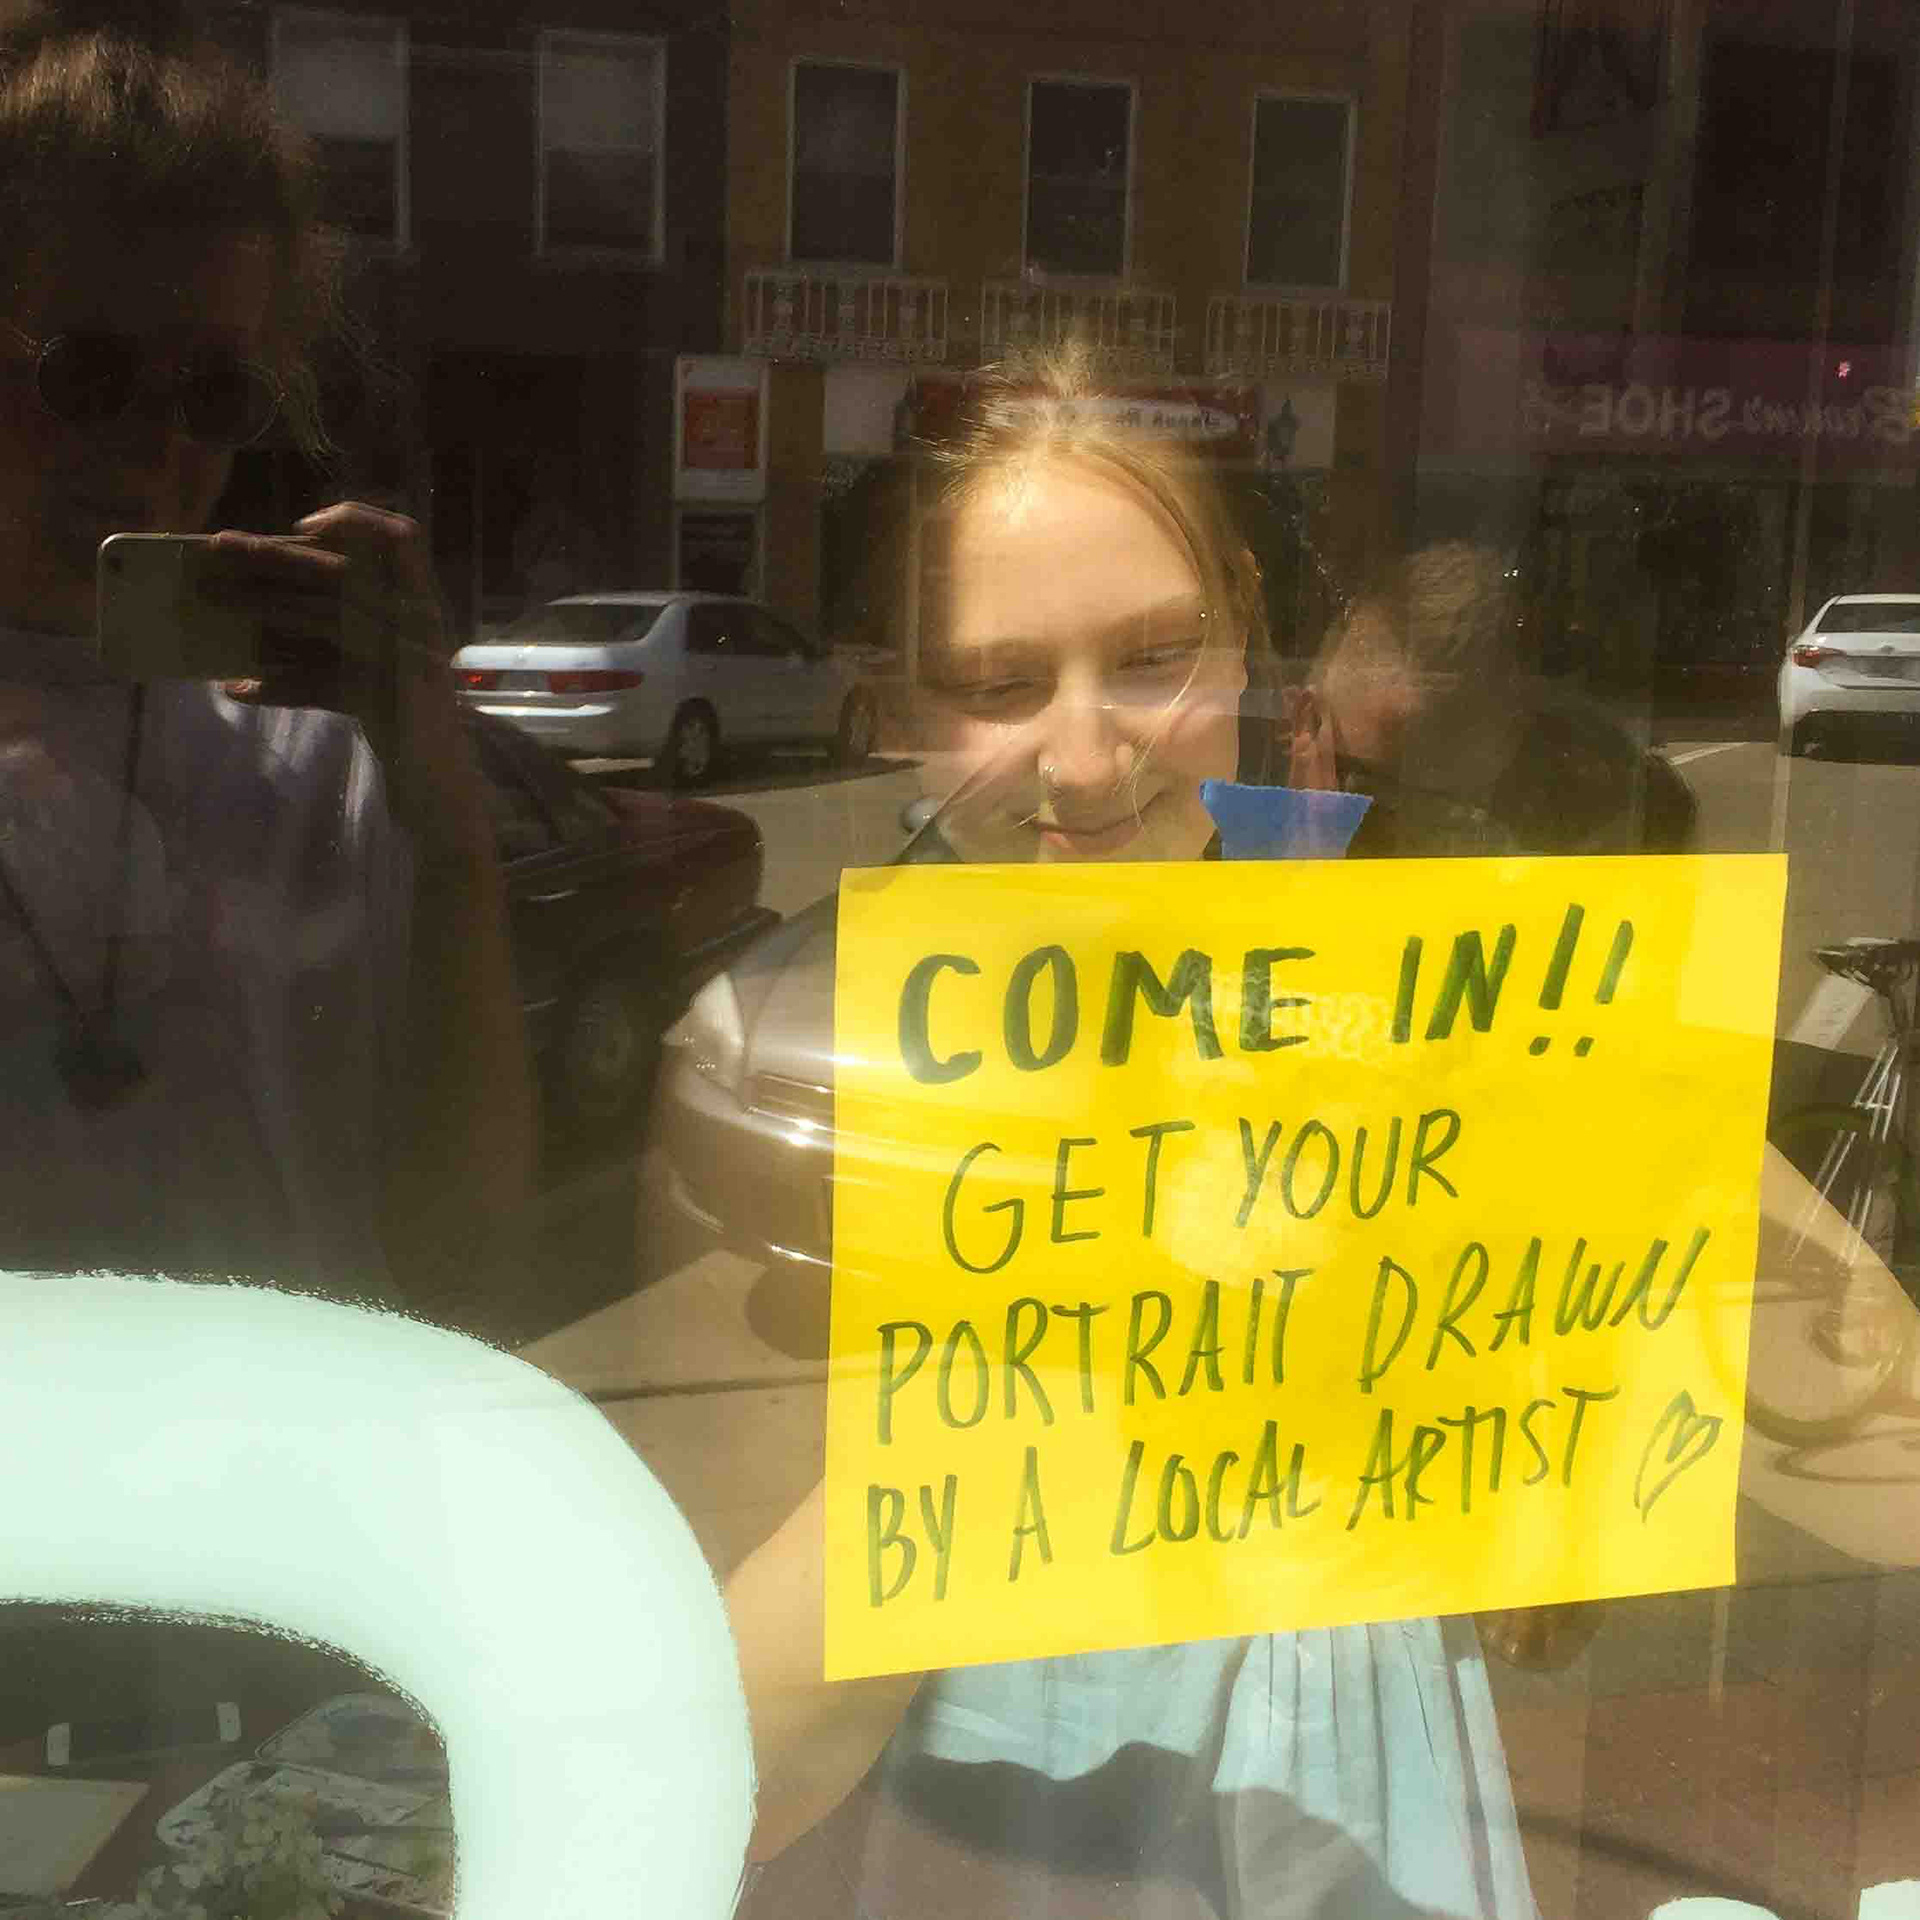 COME IN!!
GET YOUR
PORTRAIT DRAWN
BY A LOCAL ARTIST
SHOE